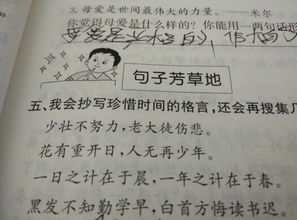 3. 母爱是世间最伟大的力量。——米尔
你觉得母爱是什么样的?你能用一两句话
母爱是
句子芳草地
五、我会抄写珍惜时间的格言,还会再搜集几
少壮不努力,老大徒伤悲。
花有重开日,人无再少年。
一日之计在于晨,一年之计在于春。
黑发不知勤学早,白首方悔读书迟。